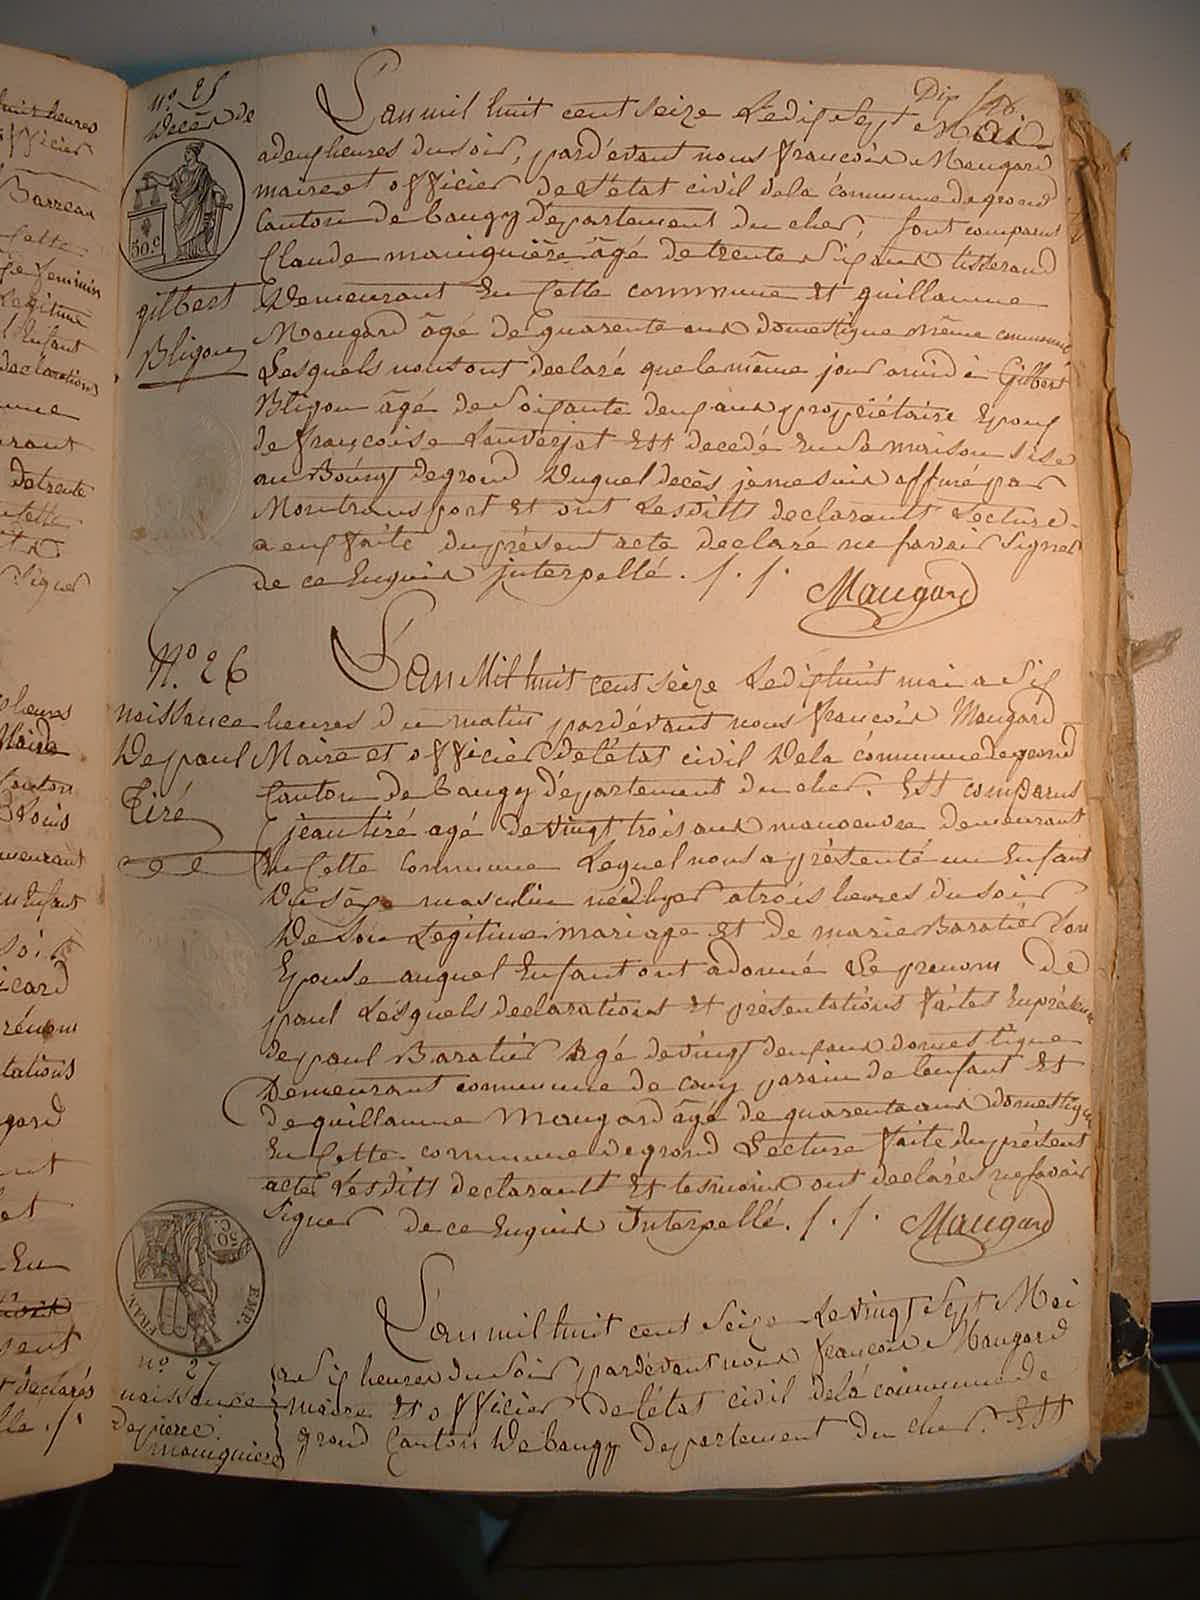 Dix sept
n.º 25
Décès de
gilbert
Bligou
L'an mil huit cent seize Le dix Sept Mai
a deux heures du soir, pard'evant nous françois Maugard
maire et officier de l'état civil dela commune de grond
Canton de baugy département du cher, sont comparus
Claude mauiguière âgé de trente Six ans tisserand
Demeurant En Cette commune Et guillaume
Maugard âgé de quarente ans domestique même commune
Lesquels nous ont declaré que le même jour a midi Gilbert
Bligou âgé de Soixante deux ans propriétaire Epoux
de françoise Lauverjat Est decedé En Sa maison Sise
au Bourg de grond Duquel decès je me suis assuré par
Mon transport Et ont Lesdits declarants Lecture
a eux faite du présent acte declaré ne savoir Signer
de ce Enquis jnterpellé. /. /. Maugard
N.º 26
naissance
De paul
Tiré
L'an Mil huit cent seize Le dix huit mai a Six
heures du matin pardévant nous françois Maugard
Maire et officier de l'état civil De la commune de grond
Canton de baugy département du cher. Est comparus
jean tiré agé de vingt trois ans manoeuvre demeurant
En Cette Commune Lequel nous a présenté un Enfant
Du Sexe masculin né d'hyer a trois heures du soir
De Son Légitime mariage et de marie Baratier Son
Epouse auquel Enfant ont a donné Le prenom de
paul Lésquels declarations Et présentations faites En présence
de paul Baratier agé de vingt deux ans domestique
Demeurant commune de couy parain de lenfant Et
de guillaume Maugard âgé de quarente ans domestique
En Cette commune de grond Lecture faite du présent
acte Lesdits declarants Et tesmoins ont declarés ne savoir
Signer de ce Enquis Interpellé. /. /. Maugard
n.º 27
naissance
de pierre
mauiguière
L'an mil huit cent Seize Le vingt Sept Mai
a Six heures du Soir pardévant nous françois Maugard
maire Et officier de l'état civil de la commune de
grond Canton De baugy département du cher. Est
50.c
EMP. FRAN.
50 C.
huit heures
officier
Barreau
Cette
Sexe feminin
Legitime
l'Enfant
declarations
de trente
Cette
Signer
heures
Maire
Canton
Louis
demeurant
un Enfant
Soir
icard
prénom
tations
gard
Et
En
sent
declarés
lle ./.